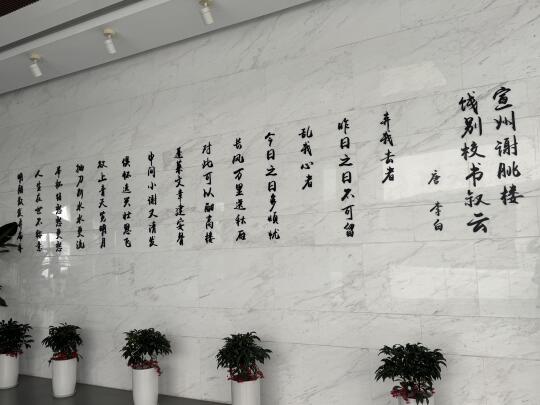 宣州谢朓楼
饯别校书叔云
唐 李白
弃我去者
昨日之日不可留
乱我心者
今日之日多烦忧
长风万里送秋雁
对此可以酣高楼
蓬莱文章建安骨
中间小谢又清发
俱怀逸兴壮思飞
欲上青天览明月
抽刀断水水更流
举杯销愁愁更愁
人生在世不称意
明朝散发弄扁舟